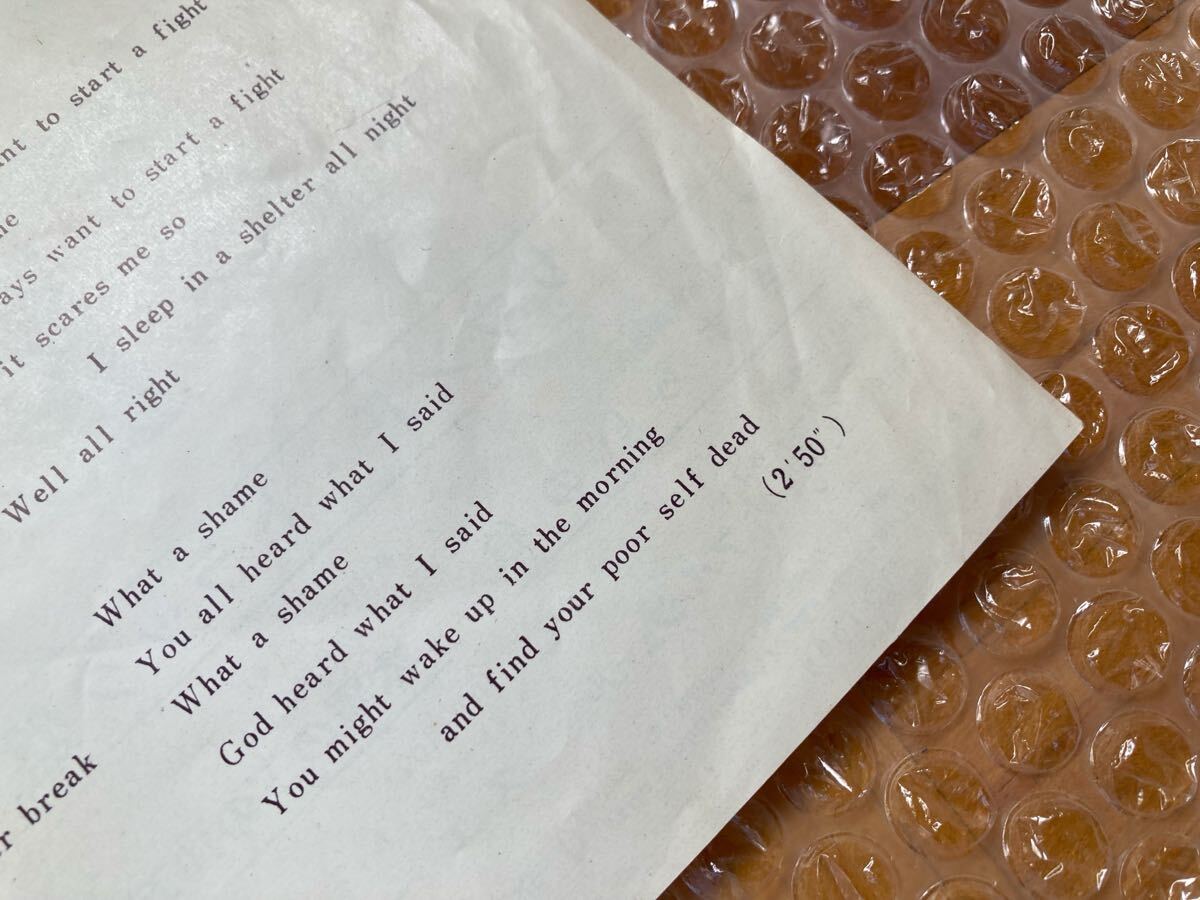 to start a fight
want to start a fight
it scares me so
I sleep in a shelter all night
Well all right
What a shame
You all heard what I said
What a shame
God heard what I said
You might wake up in the morning
and find your poor self dead
(2'50")
break